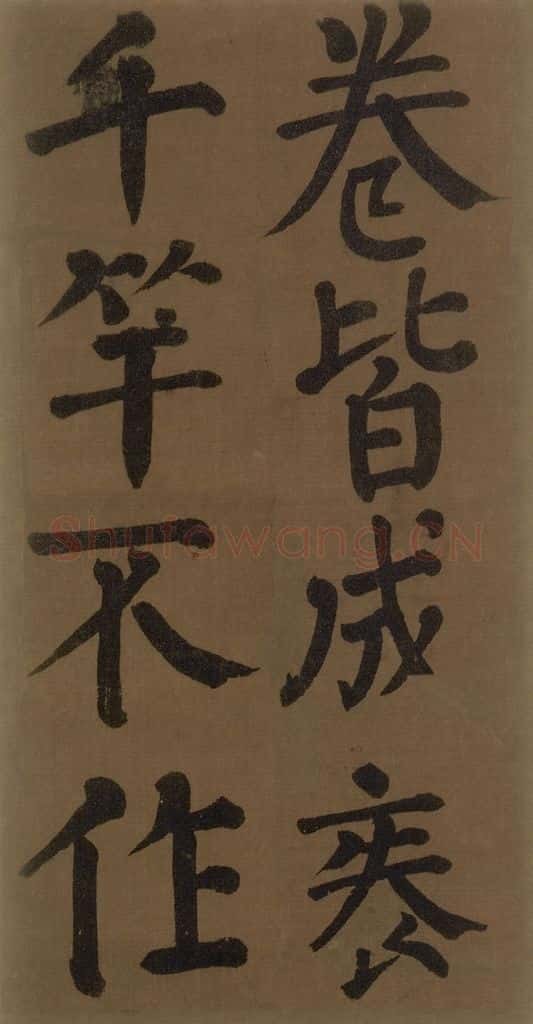 卷皆成袠
千竿不作
Shufawang.CN